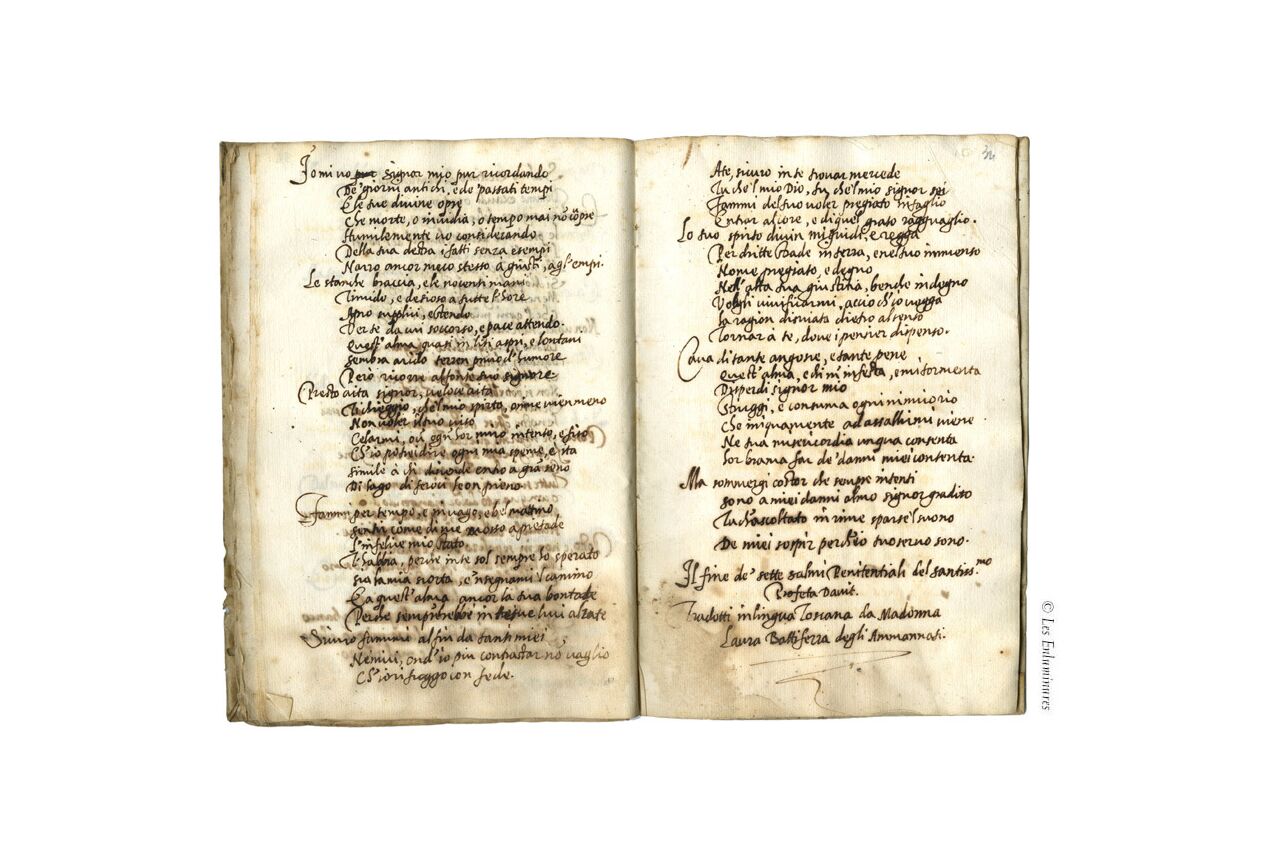 Io mi vo pur signor mio pur ricordando
De giorni antichi, e de passati tempi
E le tue divine opre
Che morte, o invidia, o tempo mai nō copre
Humilmente vo considerando
Della tua destra i fatti senza esempi
Narro ancor meco stesso à giusti, a gl'empi.
Le stanche braccia, e le nocenti mani
Timido, e desioso a tutte l'hore
Apro supplici, e stendo
Ver te da cui soccorso, e pace attendo.
Quest'alma quasi in lidi aspri, e lontani
sembra arido terren privo d'humore
Però ricorre al fonte suo signore
Presto aita signor, veloce aita
Ti cheggio, che'l mio spirto, omie vien meno
Non voler il tuo viso
Celarmi, ov'ogn'hor miro intento, e fiso
Ch'io potrei dire ogni mia speme, è ita
simile à chi discende entro a gran seno
Di lago di feroci leon pieno
Fammi per tempo, e in vago, e bel matino
sentir come di me mosso a pietade
L'infelice mio stato
T'habbia, perche in te sol sempre ho sperato
sia la mia scorta, e'nsegnami'l camino
E a quest'alma ancor la tua bontade
Perche sempr'hebbe in te sue luci alzate
Sicuro fammi al fin da tanti miei
Nemici, ond'io piu contrastar nō vaglio
Ch'io rifuggo con fede.
34
A te, sicuro in te trovar mercede
Tu che'l mio Dio, tu che'l mio signor sei
Fammi del tuo voler pregiato intaglio
Entrar al core, e di quel grato ragguaglio.
Lo tuo spirto divin mi guidi, e regga
Per dritte strade in terra, e nel tuo immenso
Nome pregiato, e degno
Nell'alta tua giustitia, benche indegno
Vogli vivificarmi, accio ch'io vegga
la ragion disviata dietro al senso
Tornar à te, dove i pensier dispenso.
Cava di tante angosce, e tante pene
Quest'alma, e chi m'infesta, e mi tormenta
Disperdi signor mio
Struggi, e consuma ogni nimico rio
Che iniquamente ad assalirmi viene
Ne tua misericordia unqua consenta
lor brama far de' danni miei contenta.
Ma sommergi costor che sempre intenti
sono a miei danni almo signor gradito
Tu ch'ascoltato in rime sparse'l suono
De miei sospir perch'io tuo servo sono.
Il fine de' sette salmi Penitentiali del santiss.mo
Profeta Davit.
Tradotti in lingua Toscana da Madonna
Laura Battiferra degli Ammannati.
© Les Enluminures